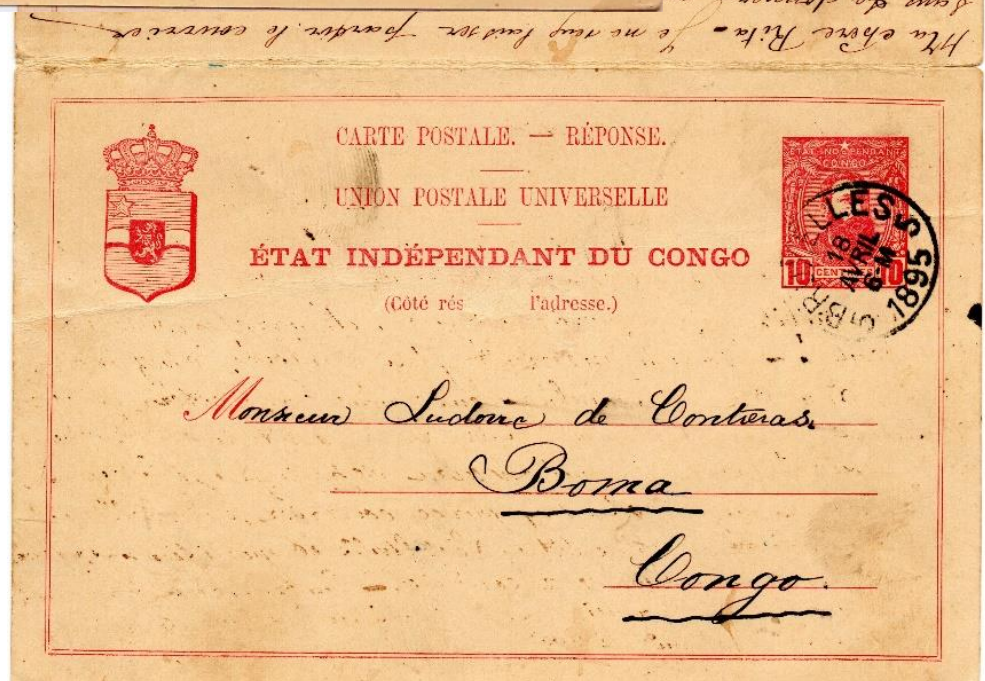 Ma chère Rita - Je ne veux laisser partir le courrier
sans
CARTE POSTALE. — RÉPONSE.
UNION POSTALE UNIVERSELLE
ÉTAT INDÉPENDANT DU CONGO
(Côté rés l'adresse.)
ÉTAT INDÉPENDANT
CONGO
10 CENTIMES 10
BRUXELLES 5
18
AVRIL
6 M
1895
5
Monsieur Ludovic de Contreras.
Boma
Congo.